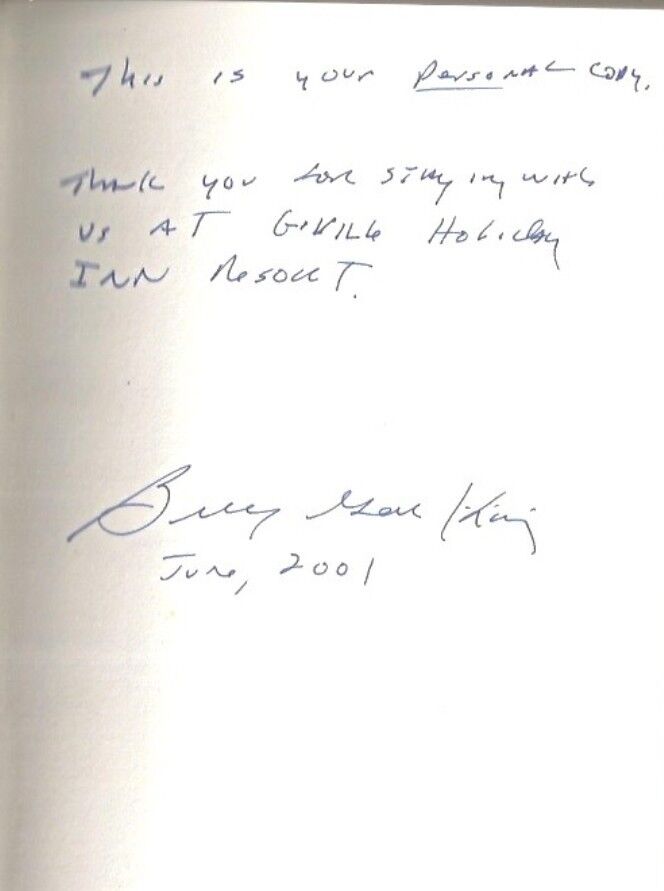 This is your Personal copy.
Thank you for staying with
us AT G'ville Holiday
INN Resort.
Billy King
June, 2001